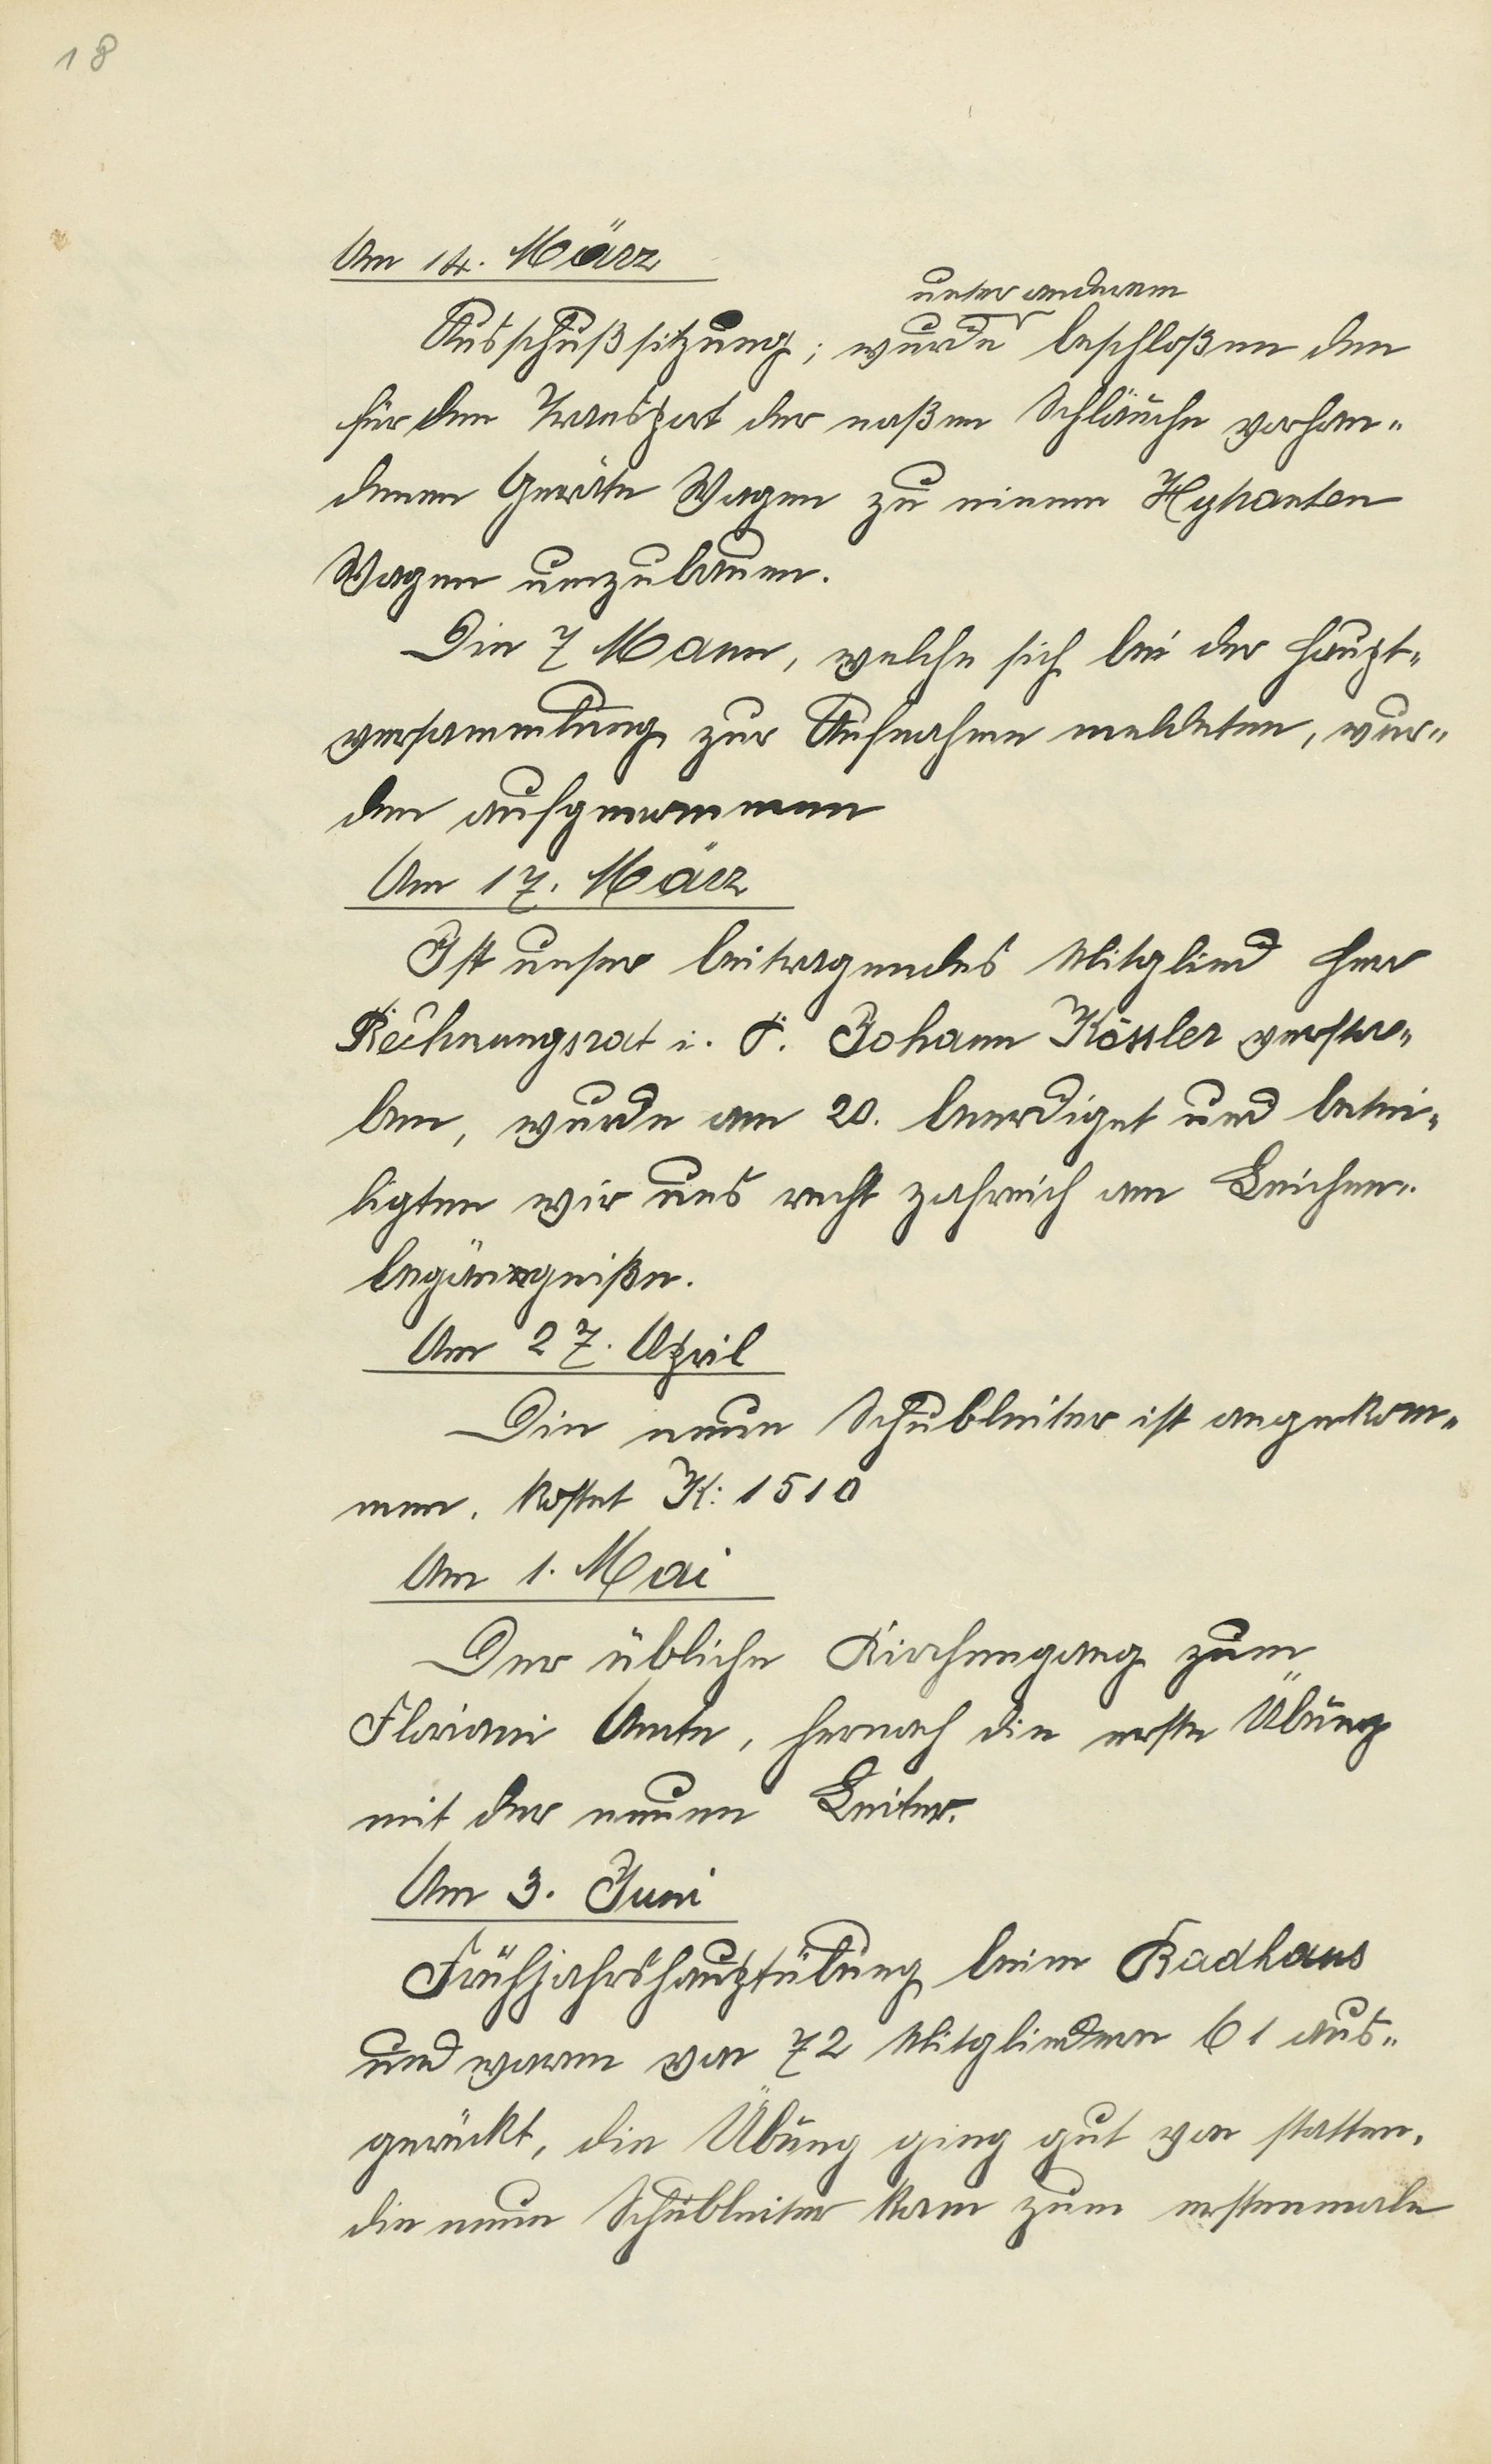 18
Am 14. März
unter anderem
Ausschußsitzung; wurde beschloßen den
für den Transport der naßen Schläuche vorhan-
denen Geräte Wagen zu einem Hyhanten
Wagen umzubauen.
Die 7 Mann, welche sich bei der Haupt-
versammlung zur Aufnahme meldeten, wur-
den aufgenommen
Am 17. März
Ist unser beitragendes Mitglied Herr
Rechnungsrat i. P. Johann Kössler verstor-
ben, wurde am 20. beerdiget und betei-
ligten wir uns recht zahreich am Leichen-
begängniße.
Am 27. April
Die neue Schubleiter ist angekom-
men. kostet K: 1510
Am 1. Mai
Der übliche Kirchengang zum
Floriani Amte, hernach die erste Übung
mit der neuen Leiter.
Am 3. Juni
Frühjahrshauptübung beim Badhaus
und waren von 72 Mitgliedern 61 aus-
gerückt, die Übung ging gut von statten,
die neue Schubleiter kam zum erstenmale